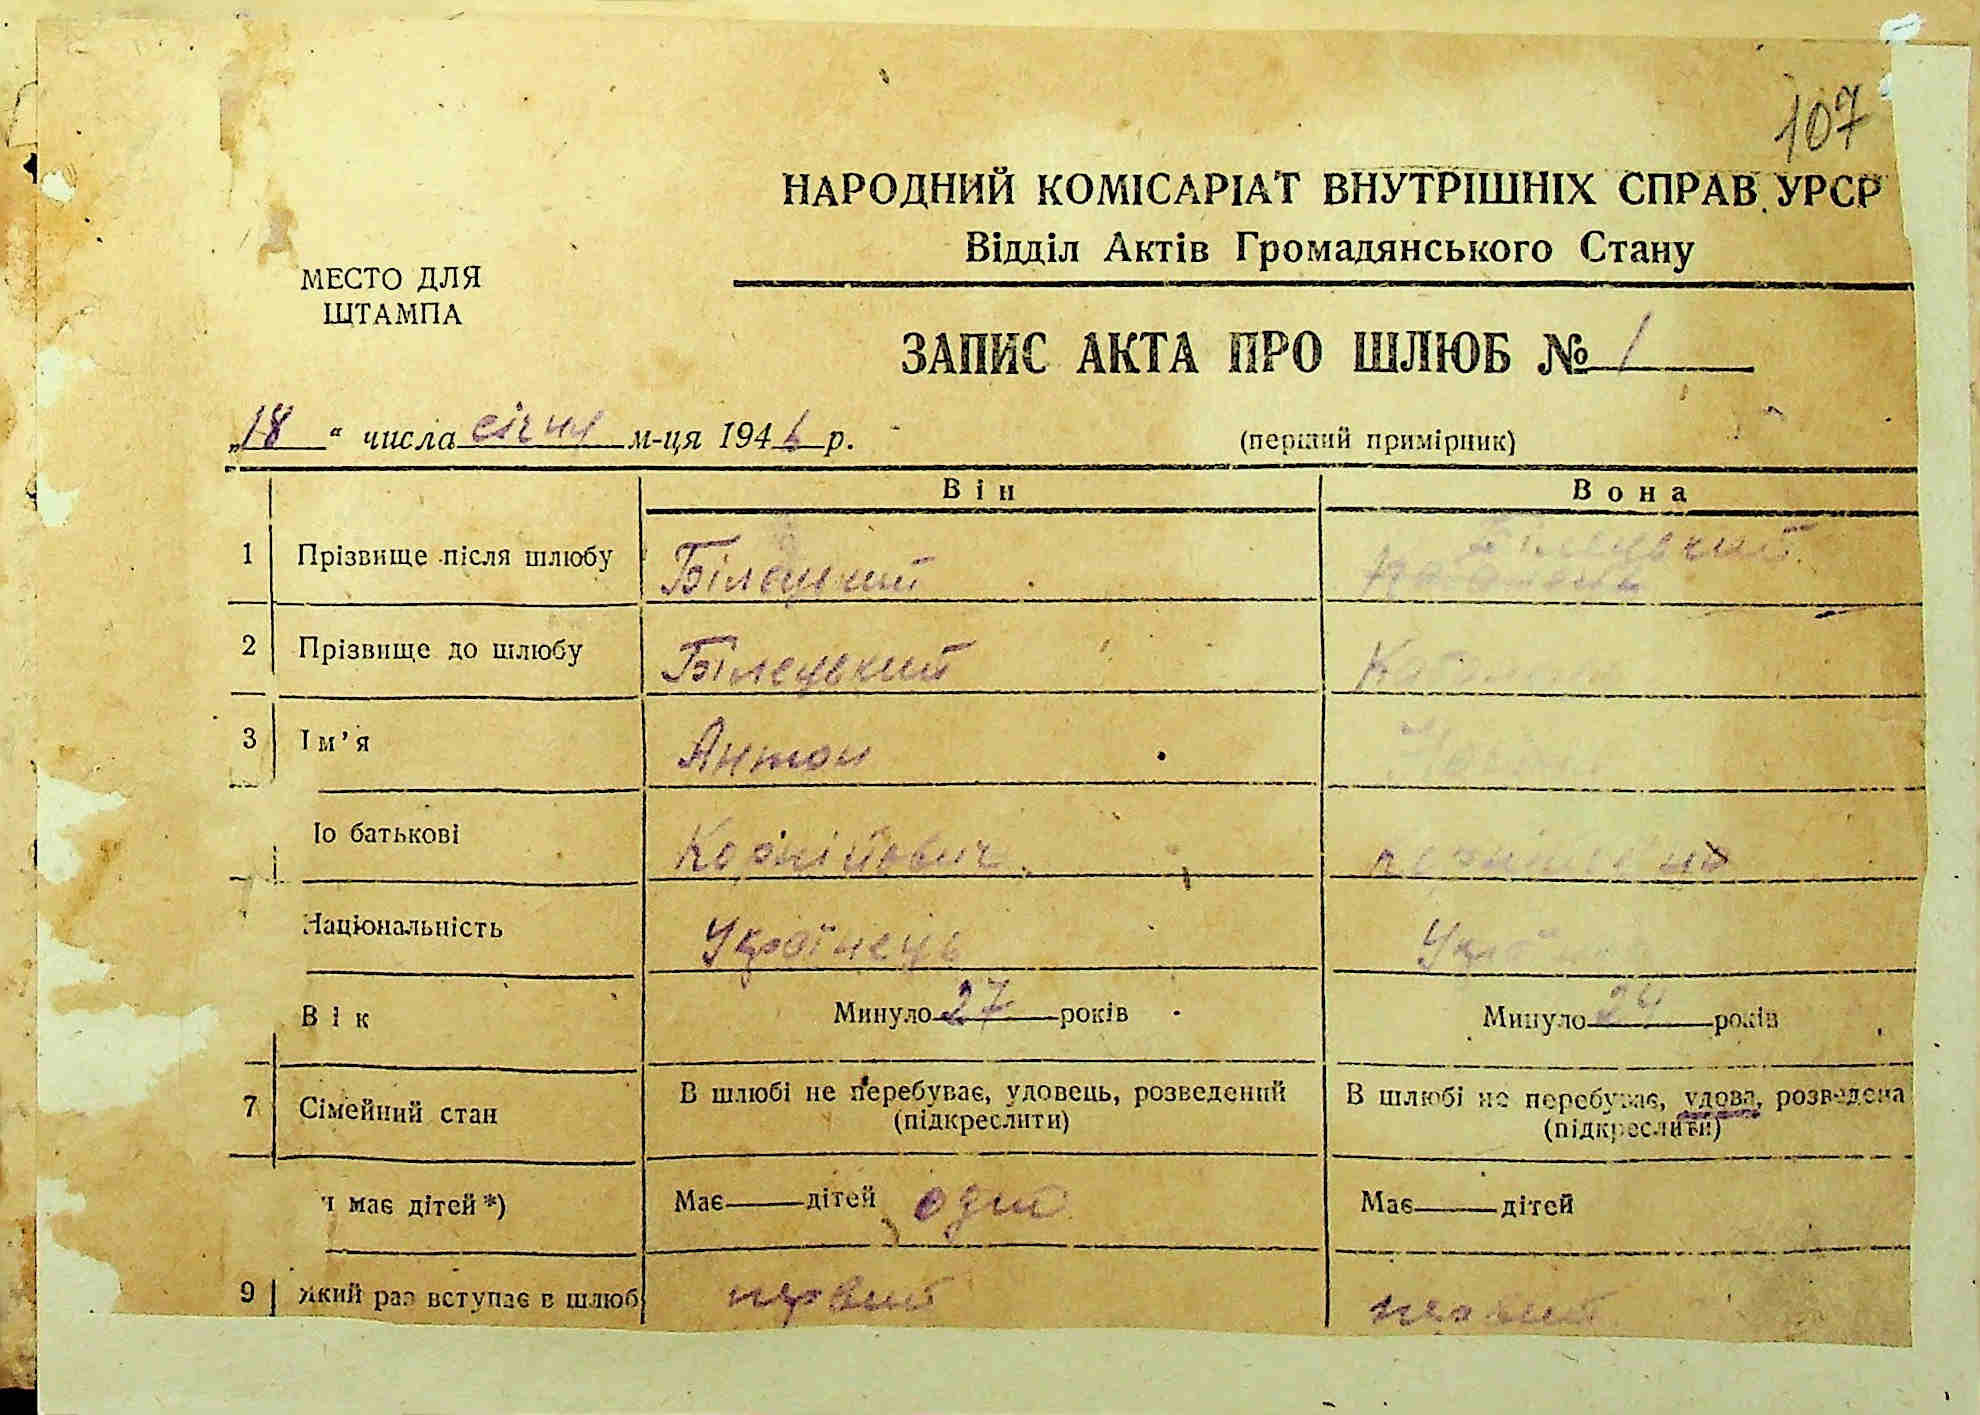 107
НАРОДНИЙ КОМІСАРІАТ ВНУТРІШНІХ СПРАВ УРСР
Відділ Актів Громадянського Стану
МЕСТО ДЛЯ
ШТАМПА
ЗАПИС АКТА ПРО ШЛЮБ № 1
„18“ числа січня м-ця 1946 р.
(перший примірник)
Він Вона
1 Прізвище після шлюбу Білецький Білецький
2 Прізвище до шлюбу Білецький
3 Ім’я Антон
Іо батькові Корнійович
Національність Українець
Вік Минуло 27 років Минуло 24 років
7 Сімейний стан В шлюбі не перебуває, удовець, розведений В шлюбі не перебуває, удова, розведена
(підкреслити) (підкреслити)
ч має дітей *) Має дітей одно Має дітей
9 який раз вступає в шлюб первий первий